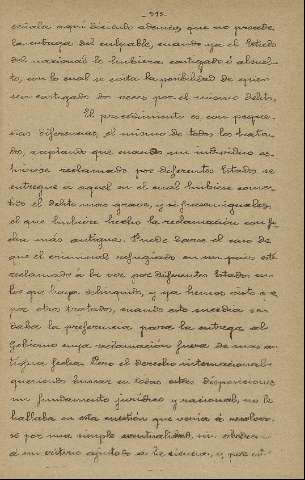 señala aquí Diculo ademas, que no procede
la entrega del culpable, cuando ya el Estado
del nacional le hubiera castigado ó absuel-
to, con lo cual se evita la posibilidad de que
sea castigado dos veces por el mismo delito.
El procedimiento es con peque-
ñas diferencias, el mismo de todos los trata-
dos, aceptando que cuando un individuo se
hiciese reclamado por diferentes Estados se
entregue a aquel en el cual hubiese come-
tido el delito mas grave, y si fuesen iguales,
al que hubiere hecho la reclamación con fe-
cha más antigua. Puede darse el caso de
que el criminal refugiado en un país esté
reclamado á la vez por diferentes Estados en
los que haya delinquido, y ya hemos visto
por otro tratado, cuando esto sucedia se
daba la preferencia para la entrega al
Gobierno cuya reclamación fuera de mas an-
tigua fecha. Pero el derecho internacional
queriendo buscar en todas estas disposiciones
un fundamento jurídico y racional, no le
hallaba en esta cuestión que venia á resolver-
se por una simple eventualidad, sin
á un criterio ajustado a la ciencia, y por